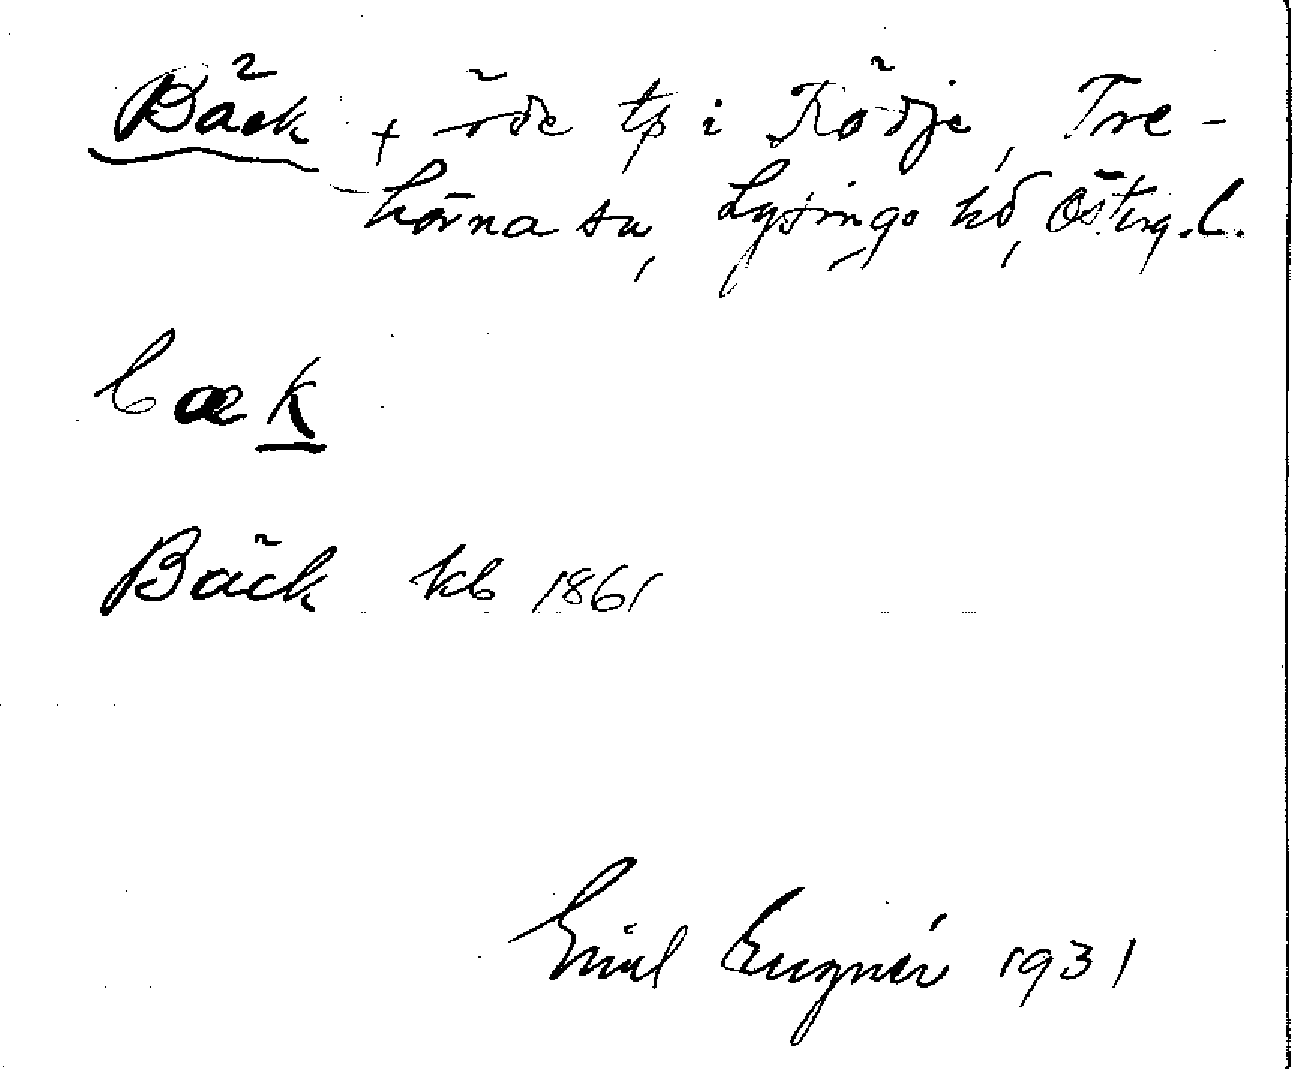 Bäck + öde tp i Rödje, Tre-
hörna sn, Lysings hd, Österg. l.
bæk
Bäck kb 1861
Emil Eugnér 1931